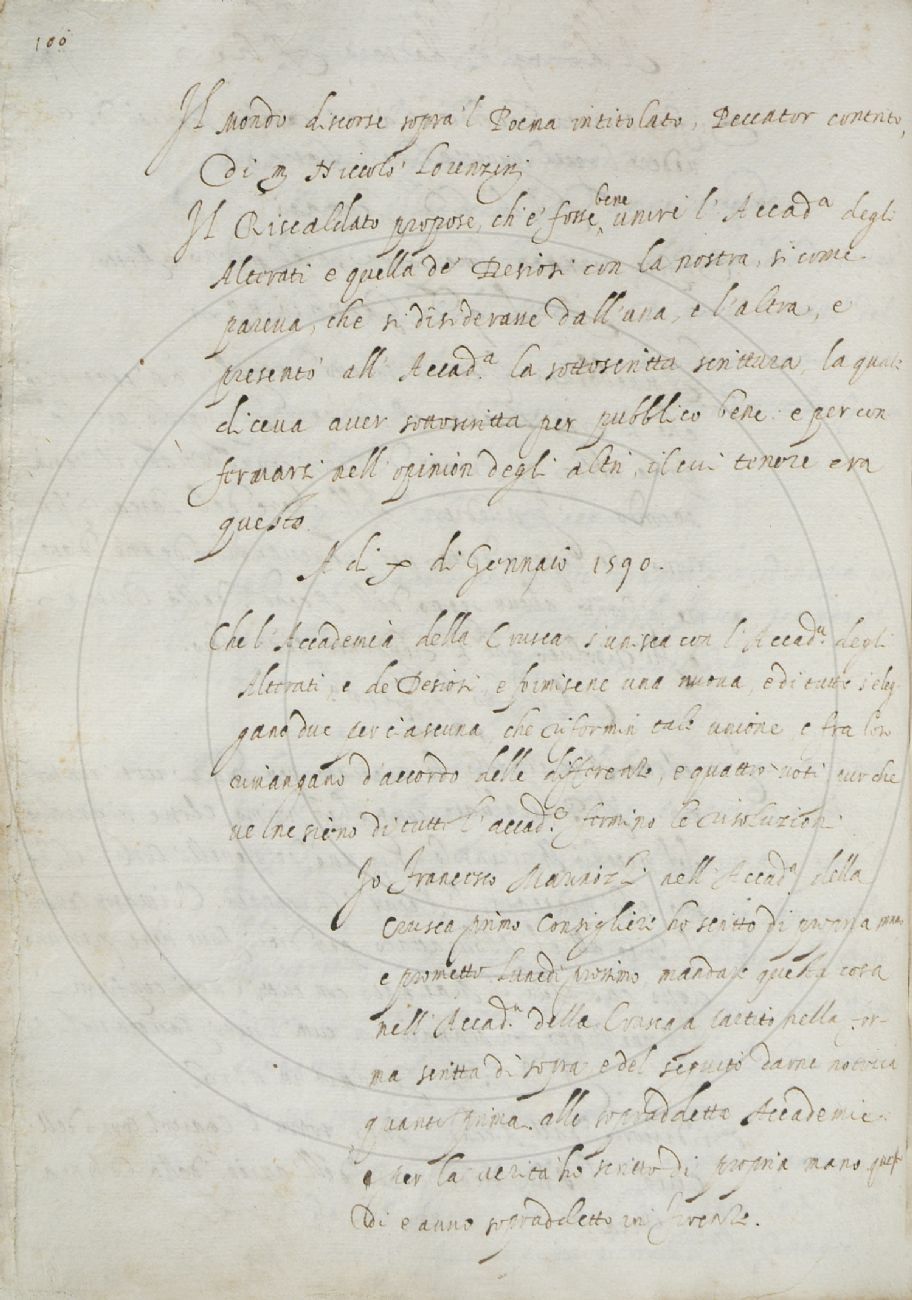 100
Il Mondo discorse sopra 'l Poema intitolato, Peccator contrito,
Di m Niccolò Lorenzini
Il Riscaldato propose, ch' e' fosse bene unire l' Accad.ª degli
Alterati e quella de' Desiosi con la nostra, si come
pareva, che si disiderasse dall' una, e l' altra, e
presentò all' Accad.ª la sottoscritta scrittura, la quale
diceva aver sottoscritta per pubblico bene e per con
formarsi nell' opinion degli altri, il cui tenore era
questo.
A dì x di Gennaio 1590.
Che l' Accademia della Crusca s' unisca con l' Accad.ª degli
Alterati, e de' Desiosi, e formisene una nuova, e di tutte s' eleg-
gano due per ciascuna che riformin tale unione e fra loro
rimangano d' accordo delle differenze, e quattro voti pur che
ve ne sieno di tutte l' accad.e fermino le risoluzioni.
Io Francesco nell' Accad.ª della
Crusca primo Consigliere ho scritto di propria mano
e prometto Lunedì prossimo mandare questa cosa
nell' Accad.ª della Crusca a partito nella for-
ma scritta di sopra, e del seguito darne notizia
quanto prima alle sopraddette Accademie
e per la verità ho scritto di propria mano questo
Dì e anno sopraddetto in Firenze.